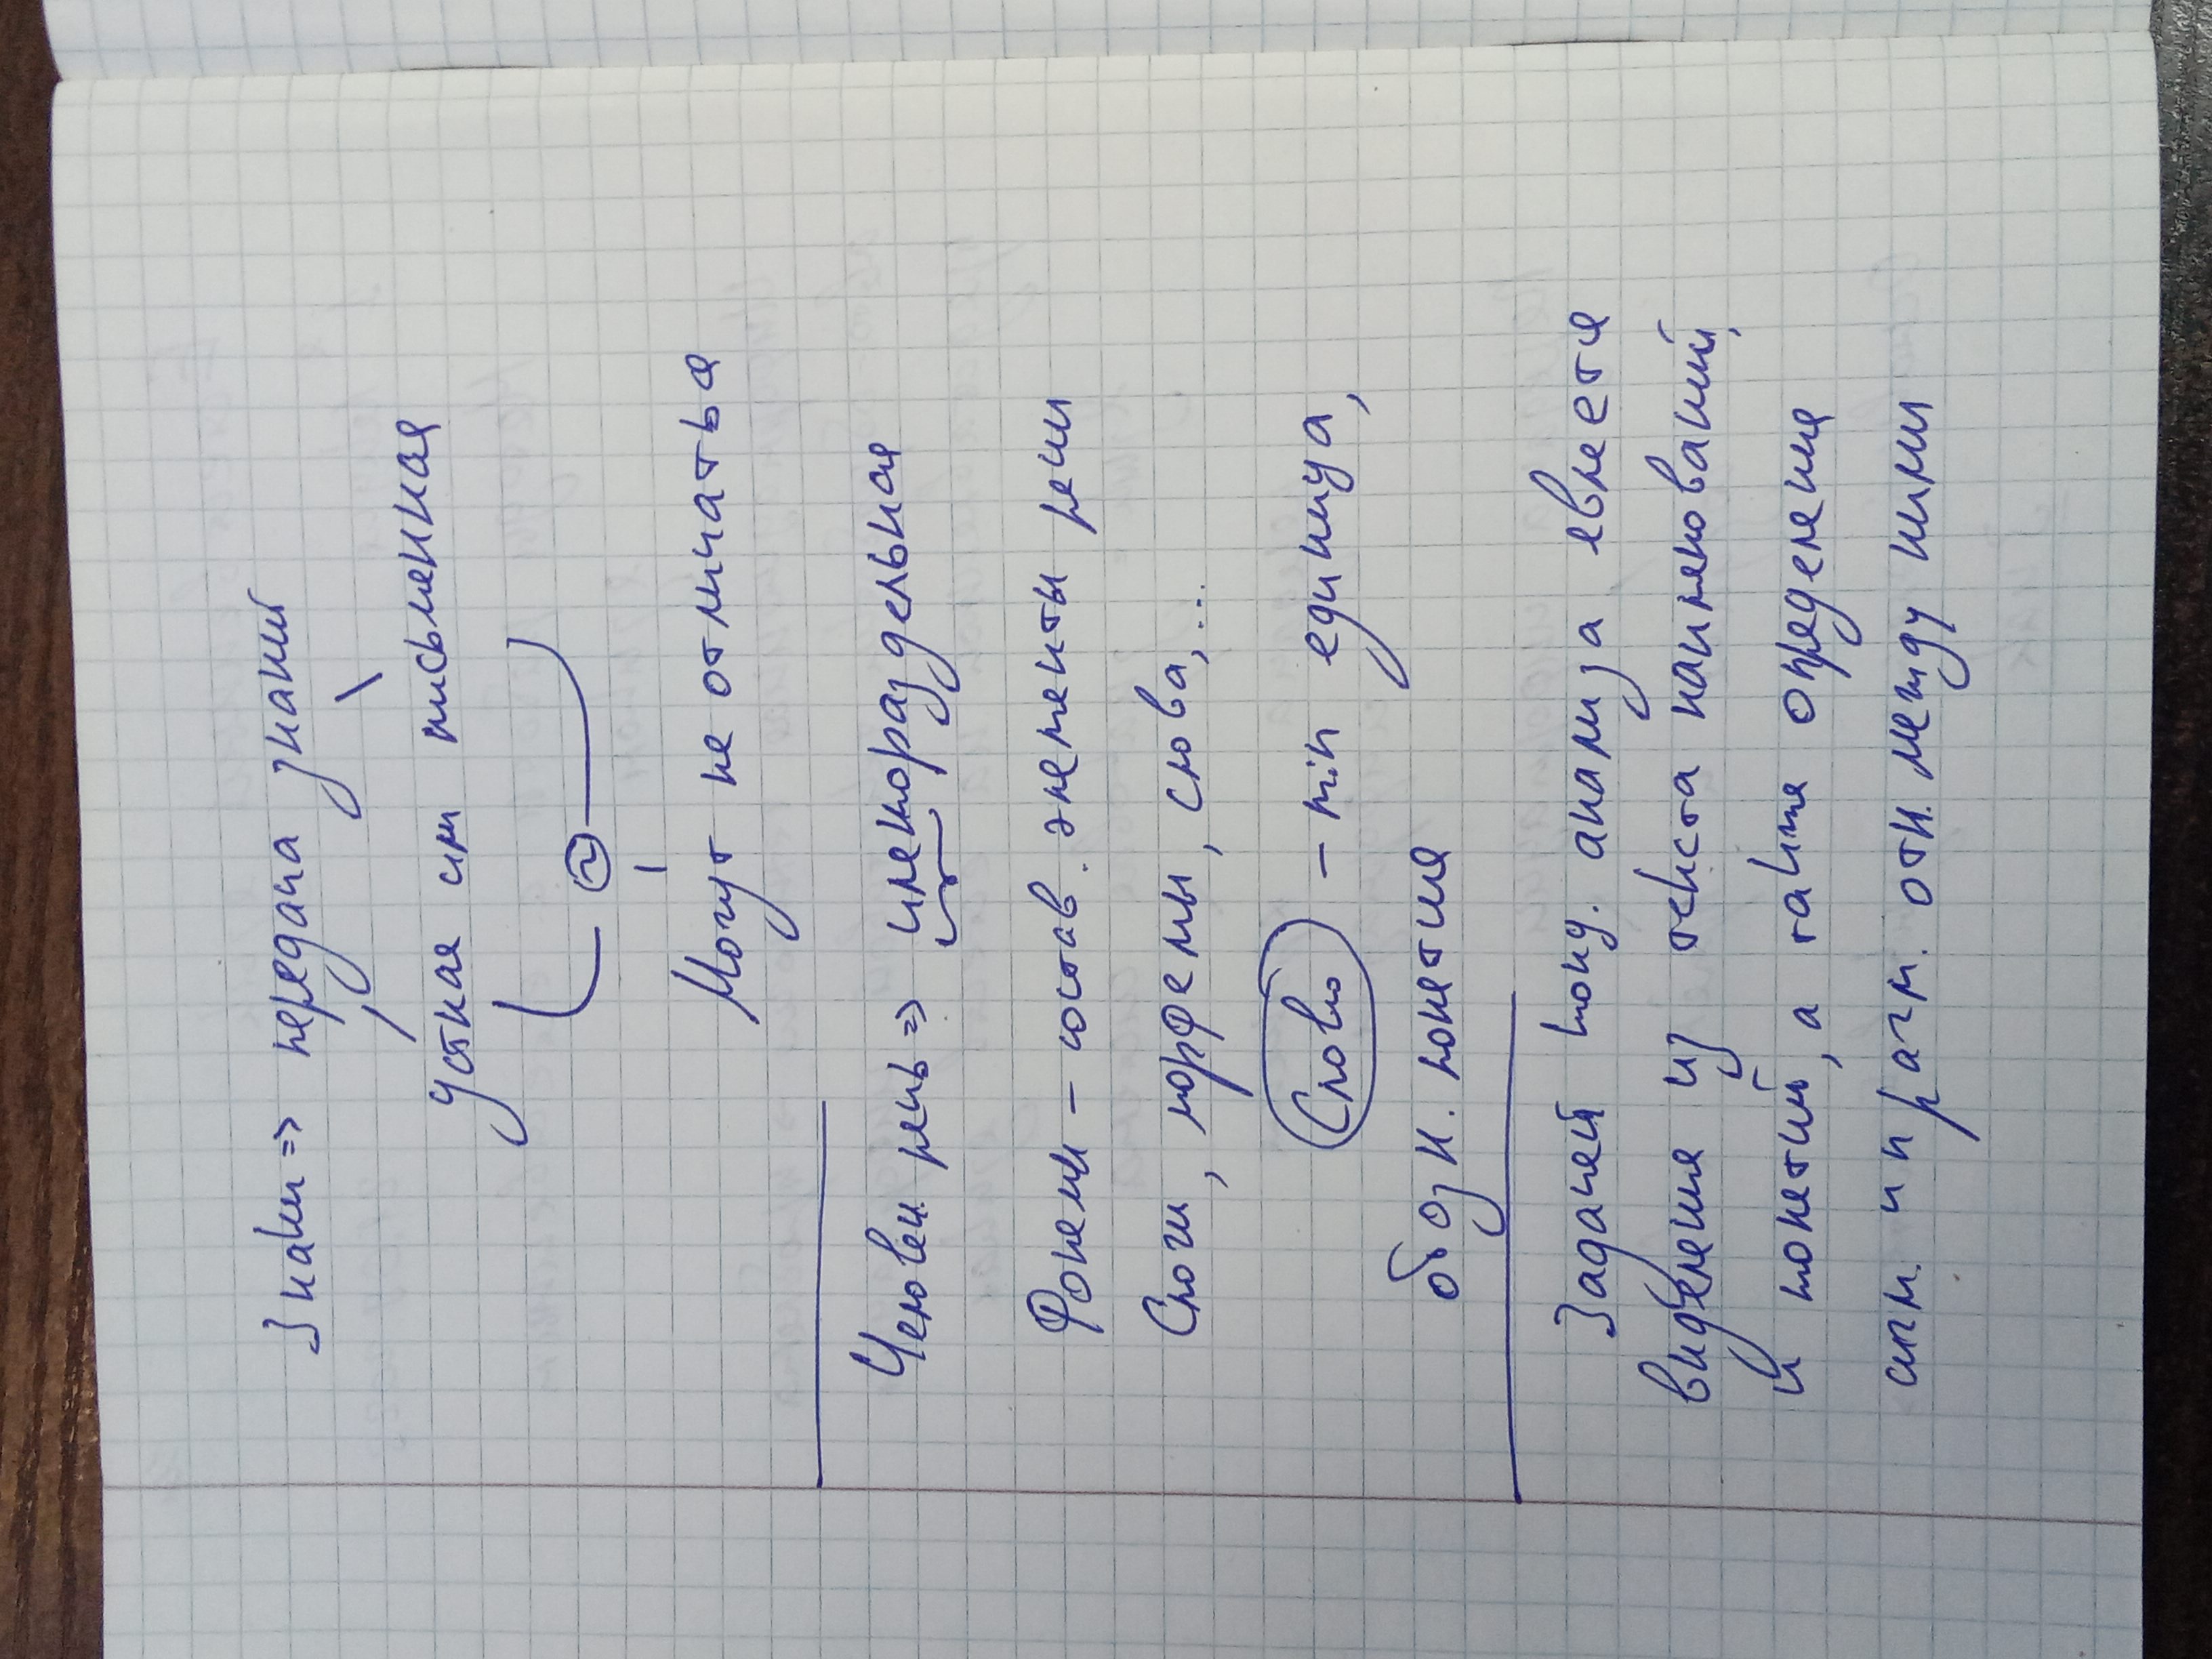 Знаки => передача знаний
устная или письменная
~
Могут не отличаться
Человеч. речь => членораздельная
Фонемы – состав. элементы речи
Слоги, морфемы, слова, ...
Слово – min единица,
обозн. понятия
Задачей конц. анализа является
выделение из текста наименований,
и понятий, а также определение
сигм. и прагм. отн. между ними